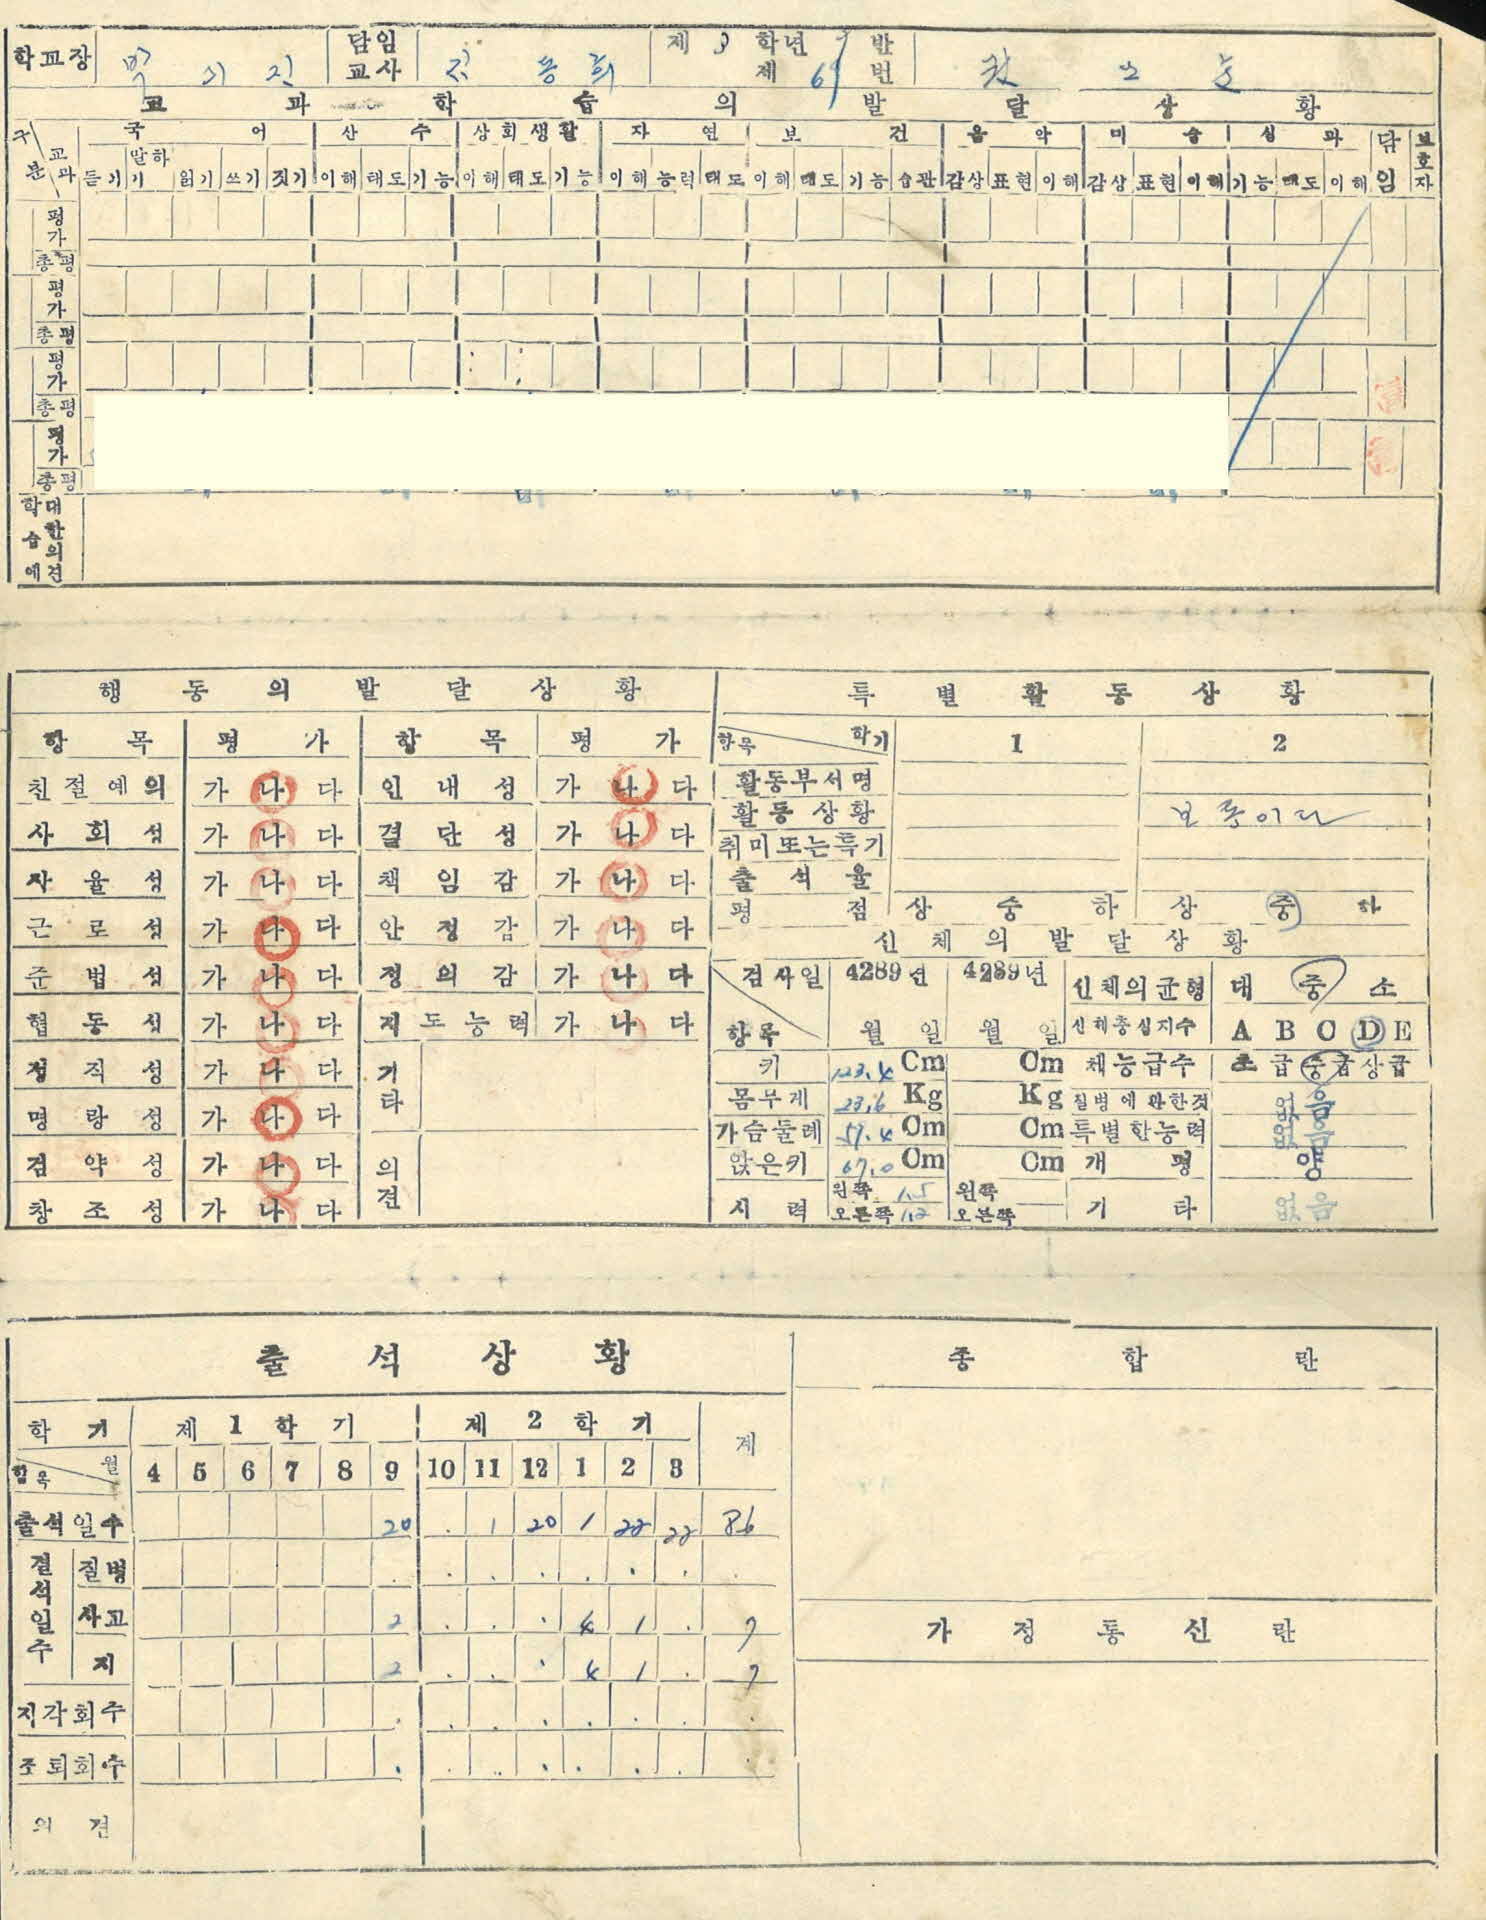 학교장 담임 교사 제 3 학년 반 제 번
교과 학습의 발달 상황
구분 교과 국어 산수 사회생활 자연 보건 음악 미술 실과 담임 보호자
듣기 말하기 읽기 쓰기 짓기 이해 태도 기능 이해 태도 기능 이해 능력 태도 이해 태도 기능 습관 감상 표현 이해 감상 표현 이해 기능 태도 이해
평가
총평
평가
총평
평가
총평
평가
총평
학습에 대한 의견
행동의 발달상황
항목 평가 항목 평가
친절예의 가 나 다 인내성 가 나 다
사회성 가 나 다 결단성 가 나 다
자율성 가 나 다 책임감 가 나 다
근로성 가 나 다 안정감 가 나 다
준법성 가 나 다 정의감 가 나 다
협동성 가 나 다 지도능력 가 나 다
정직성 가 나 다 기타
명랑성 가 나 다
검약성 가 나 다 의견
창조성 가 나 다
특별활동상황
항목 학기 1 2
활동부서명
활동상황 보통이다
취미또는특기
출석율
평점 상 중 하 상 중 하
신체의 발달상황
검사일 4289년 4289년 신체의균형 대 중 소
항목 월 일 월 일 신체충실지수 A B C D E
키 123.4 Cm Cm 체능급수 초급중급상급
몸무게 23.6 Kg Kg 질병에관한것 없음
가슴둘레 57.4 Cm Cm 특별한능력 없음
앉은키 67.0 Cm Cm 개평 양
시력 왼쪽 1.5 왼쪽 기타 없음
오른쪽 1.2 오른쪽
출석상황
학기 제1학기 제2학기 계
항목 월 4 5 6 7 8 9 10 11 12 1 2 3
출석일수 20 . 1 20 1 22 22 86
결석일수 질병 . . . . . . . .
사고 2 . . . 4 1 . 7
지 2 . . . 4 1 . 7
지각회수 . . . . . . . .
조퇴회수 . . . . . . . .
의견
종합란
가정통신란